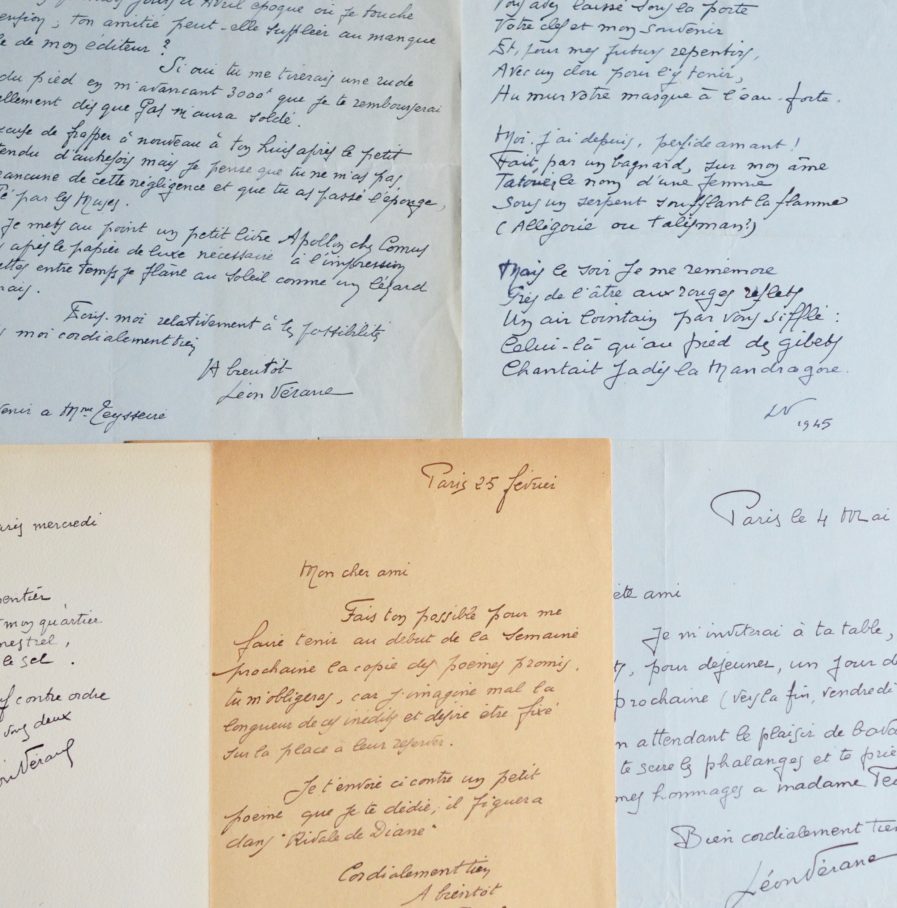 jours d'Avril époque où je touche
ton amitié peut-elle suppléer au manque
de mon éditeur ?
Si oui tu me tirerais une rude
du pied en m'avançant 3000f que je te rembourserai
dès que Gas m'aura soldé.
de frapper à nouveau à ton huis après le petit
d'autrefois mais je pense que tu ne m'as pas
rancune de cette négligence et que tu as passé l'éponge,
par les Muses.
Je mets au point un petit livre Apollon chez Comus
après le papier de luxe nécessaire à l'impression
entre temps je flâne au soleil comme un lézard
Ecris-moi relativement à tes possibilités
moi cordialement tien
A bientôt
Léon Vérane
à Mme Teysseire
Vous avez laissé sous la porte
Votre clef et mon souvenir
Et, pour mes futurs repentirs,
Avec un clou pour l'y tenir,
Au mur votre masque à l'eau-forte.
Moi, j'ai depuis, perfide amant !
Fait, par un bagnard, sur mon âme
Tatouer le nom d'une femme
Sous un serpent soufflant la flamme
(Allégorie ou talisman ?)
Mais le soir je me remémore
Près de l'âtre aux rouges reflets
Un air lointain par vous sifflé :
Celui-là qu'au pied des gibets
Chantait jadis la Mandragore.
LV
1945
mercredi
mon quartier
le sel.
contre ordre
vous deux
Léon Vérane
Paris 25 février
Mon cher ami
Fais ton possible pour me
faire tenir au début de la semaine
prochaine la copie des poèmes promis,
tu m'obligeras, car j'imagine mal la
longueur de ces inédits et désire être fixé
sur la place à leur réserver.
Je t'envoie ci contre un petit
poème que je te dédie, il figurera
dans "Rivale de Diane"
Cordialement tien
A bientôt
Paris le 4 Mai
ami
Je m'inviterai à ta table,
pour déjeuner, un jour de
prochaine (vers la fin, vendredi
attendant le plaisir de
te serre les phalanges et te prie
mes hommages a madame
Bien cordialement tien
Léon Vérane